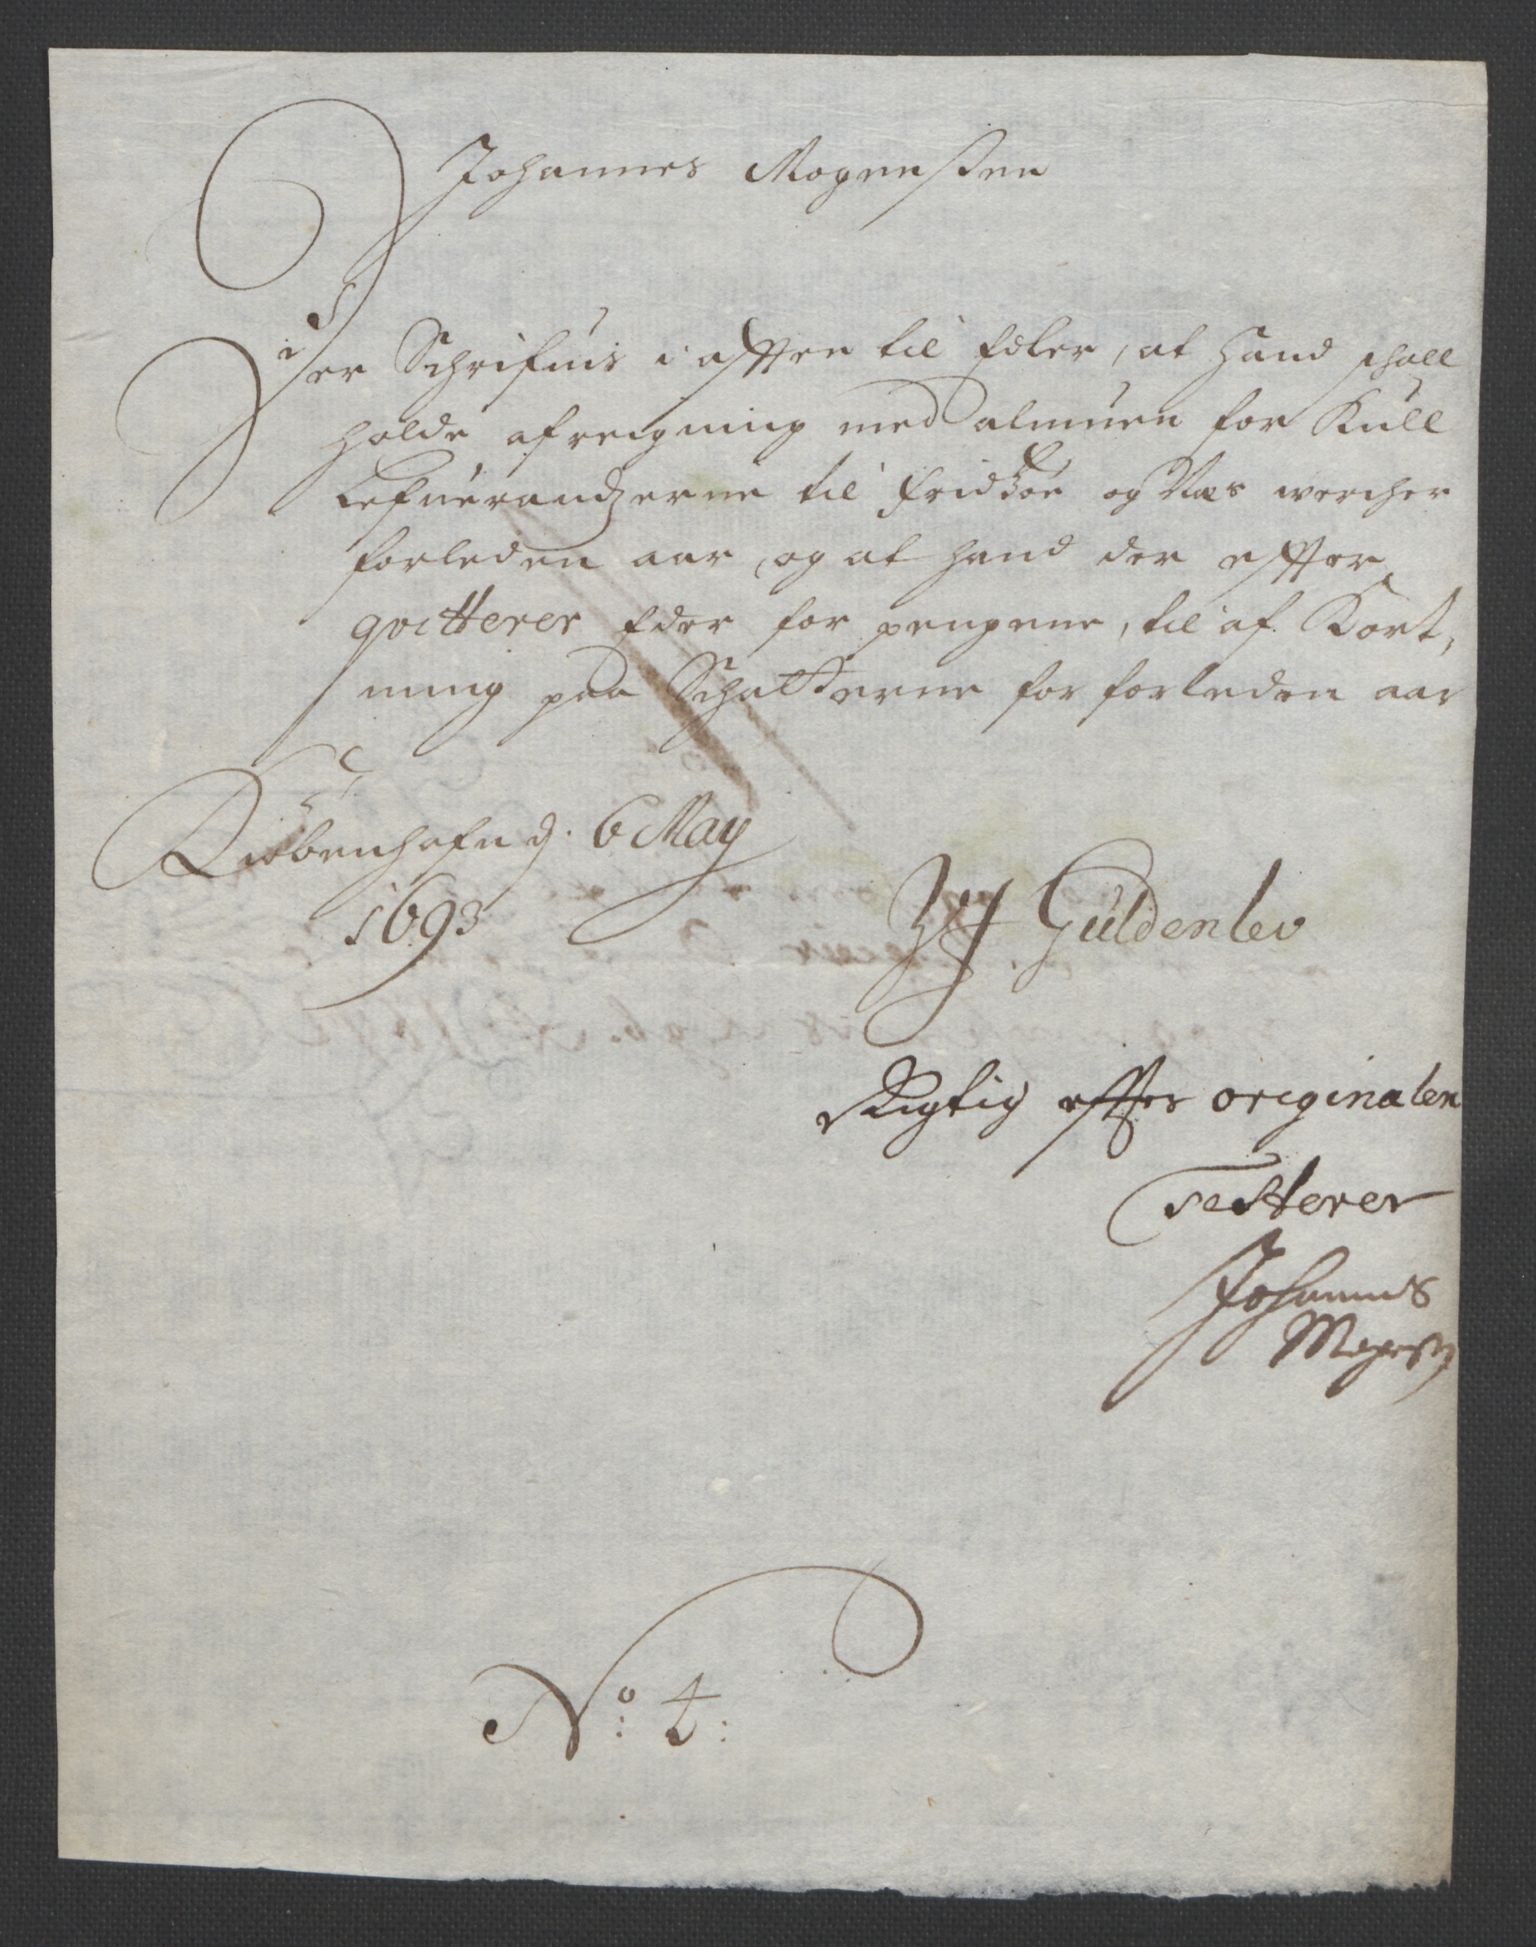 Johannes Mogensen
ier Schrifuis i afften til Eder, at hand schall
holde afreigning med almuen for Kull
Lefuerandzerne til Fridzöe og Næs wercher
forleden aar, og at hand der effter
qvitterer Eder for pengene, til af Kort,
ning paa Schatterne for forleden aar
Kiöbenhafn d. 6 May
1693
Guldenlev
Rigtig effter originalen
Testerer
Johannes
Mogens
No: 4: